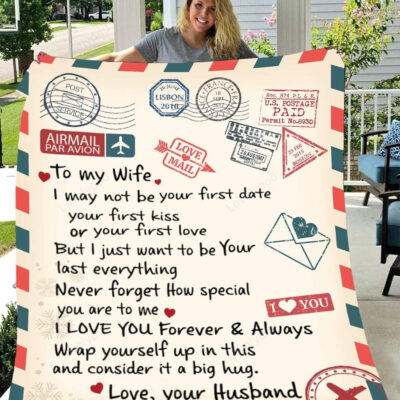 POST
SERVICE
LISBON
2010
FRANCE
Sec. 874 P.L.& R.
U.S. POSTAGE
PAID
Permit No.6930
AIRMAIL
PAR AVION
LOVE
MAIL
To my Wife
I may not be your first date
your first kiss
or your first love
But I just want to be Your
last everything
Never forget How special
you are to me
I LOVE YOU Forever & Always
I YOU
Wrap yourself up in this
and consider it a big hug.
Love, your Husband